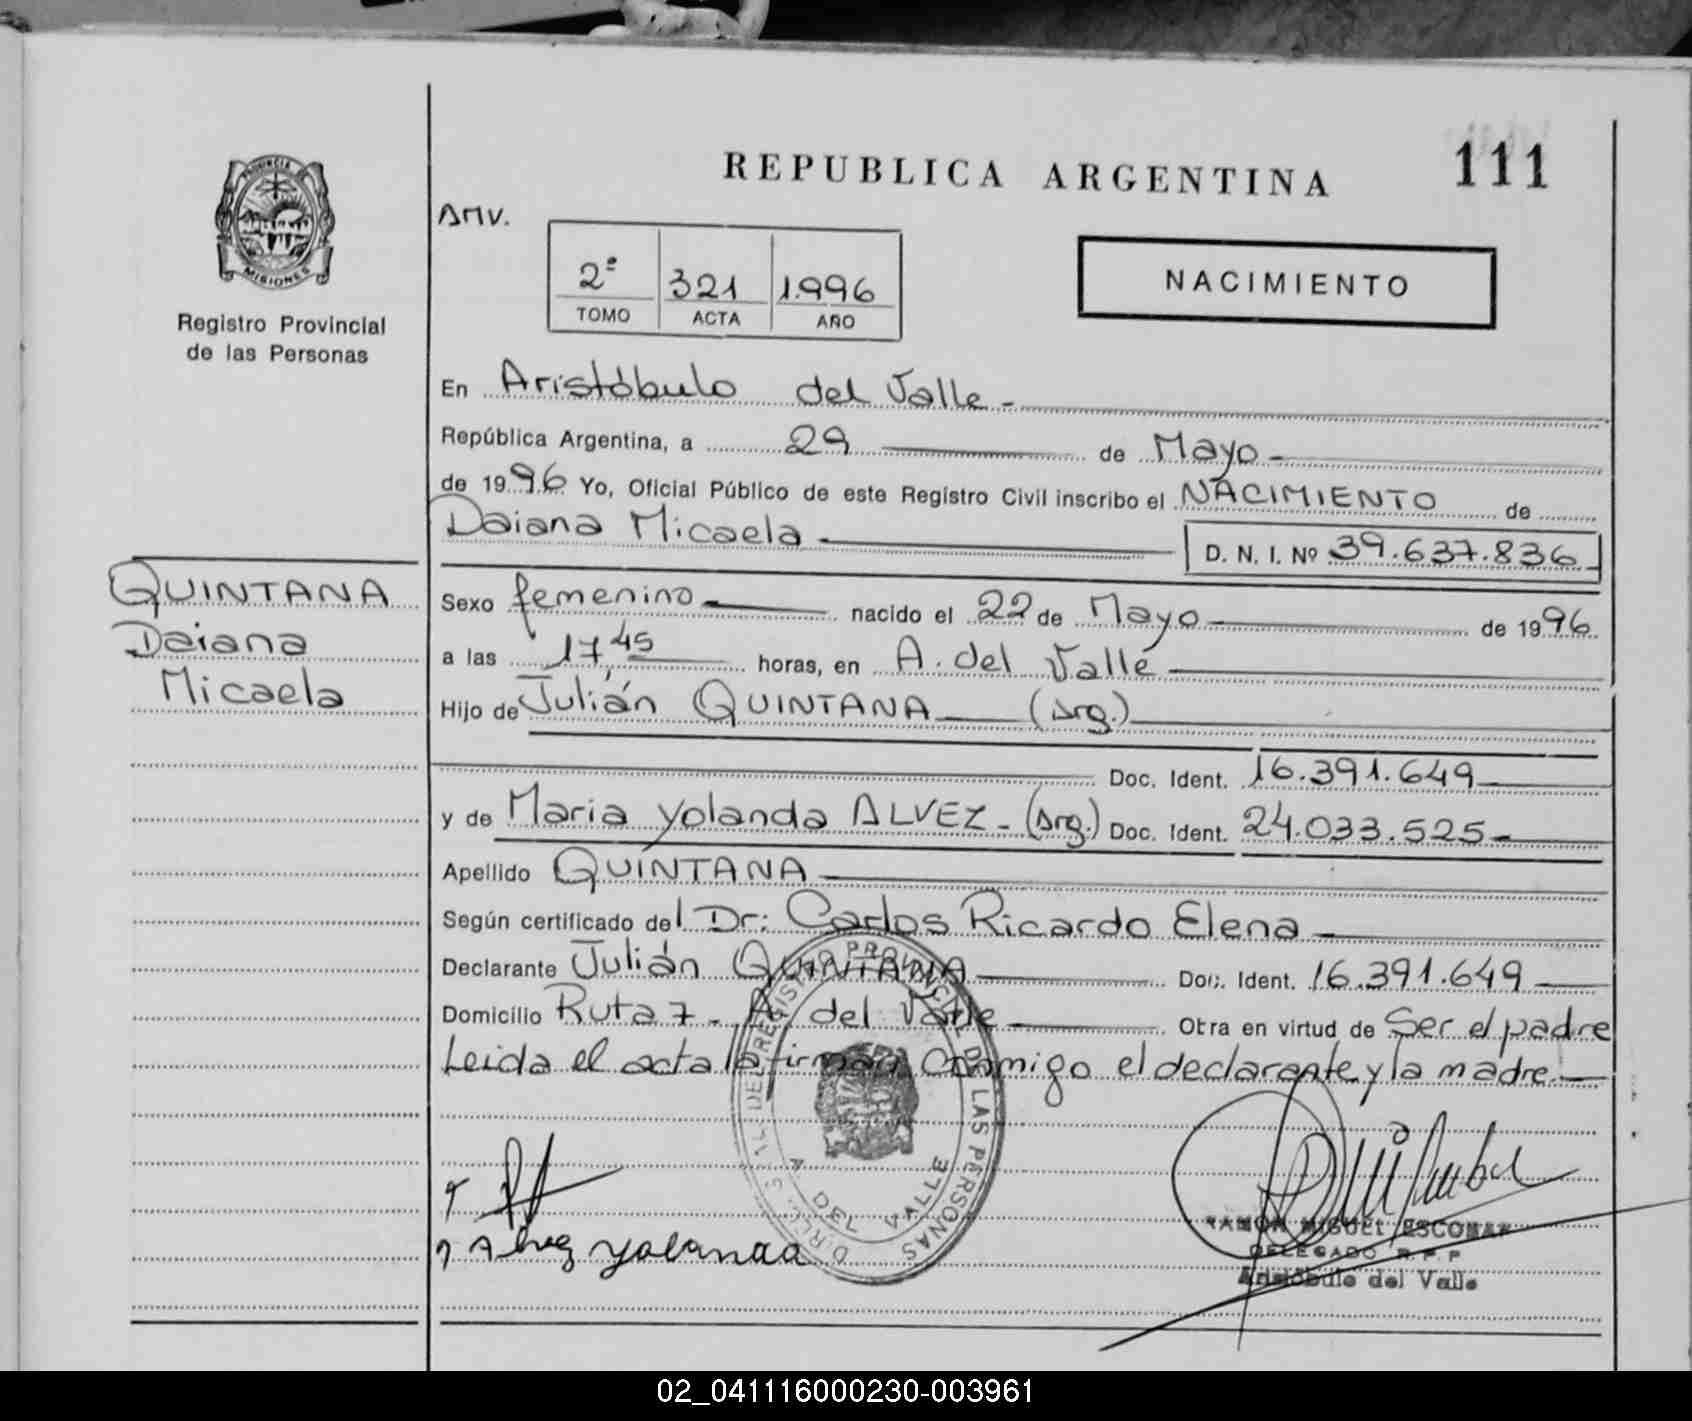 REPUBLICA ARGENTINA
111
PROVINCIA DE
MISIONES
Registro Provincial
de las Personas
AMV.
2º 321 1.996
TOMO ACTA AÑO
NACIMIENTO
En Aristóbulo del Valle.-
República Argentina, a 29 de Mayo-
de 1996 Yo, Oficial Público de este Registro Civil inscribo el NACIMIENTO de
Daiana Micaela
D. N. I. Nº 39.637.836
QUINTANA
Daiana
Micaela
Sexo femenino nacido el 22 de Mayo de 1996
a las 17,45 horas, en A. del Valle
Hijo de Julián QUINTANA (Arg.)
Doc. Ident. 16.391.649
y de Maria Yolanda ALVEZ.- (Arg.) Doc. Ident. 24.033.525-
Apellido QUINTANA
Según certificado del Dr: Carlos Ricardo Elena
Declarante Julián QUINTANA Doc. Ident. 16.391.649
Domicilio Ruta 7 - A. del Valle Obra en virtud de Ser el padre
Leida el acta la firman conmigo el declarante y la madre.-
REGISTRO PROVINCIAL DE LAS PERSONAS
A. DEL VALLE
Alvez Yolanda
RAMON MIGUEL ESCOBAR
DELEGADO R.P.P
Aristóbulo del Valle
02_041116000230-003961